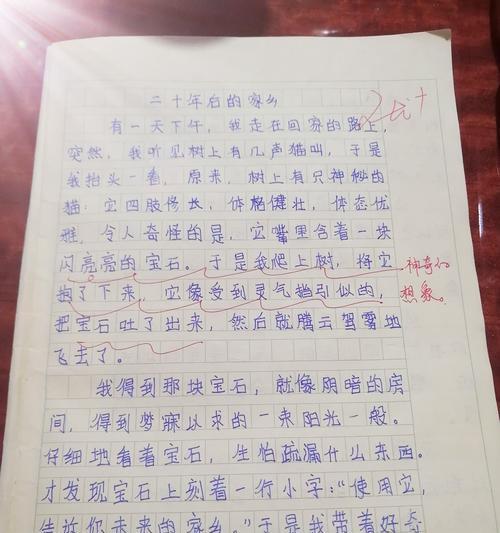 二十年后的家乡
有一天下午，我走在回家的路上，
突然，我听见树上有几声猫叫，于是
我抬头一看，原来，树上有只神秘的
猫：它四肢修长，体格健壮，体态优
雅，令人奇怪的是，它嘴里含着一块
闪亮亮的宝石。于是我爬上树，将它
抱了下来，它像受到灵气指引似的，
把宝石吐了出来，然后就腾云驾雾地
飞去了。
神奇的
想象。
我得到那块宝石，就像阴暗的房
间，得到梦寐以求的一束阳光一般。
仔细地看着宝石，生怕疏漏什么东西。
才发现宝石上刻着一行小字：“使用它，
你未来的家乡。”于是我带着好奇